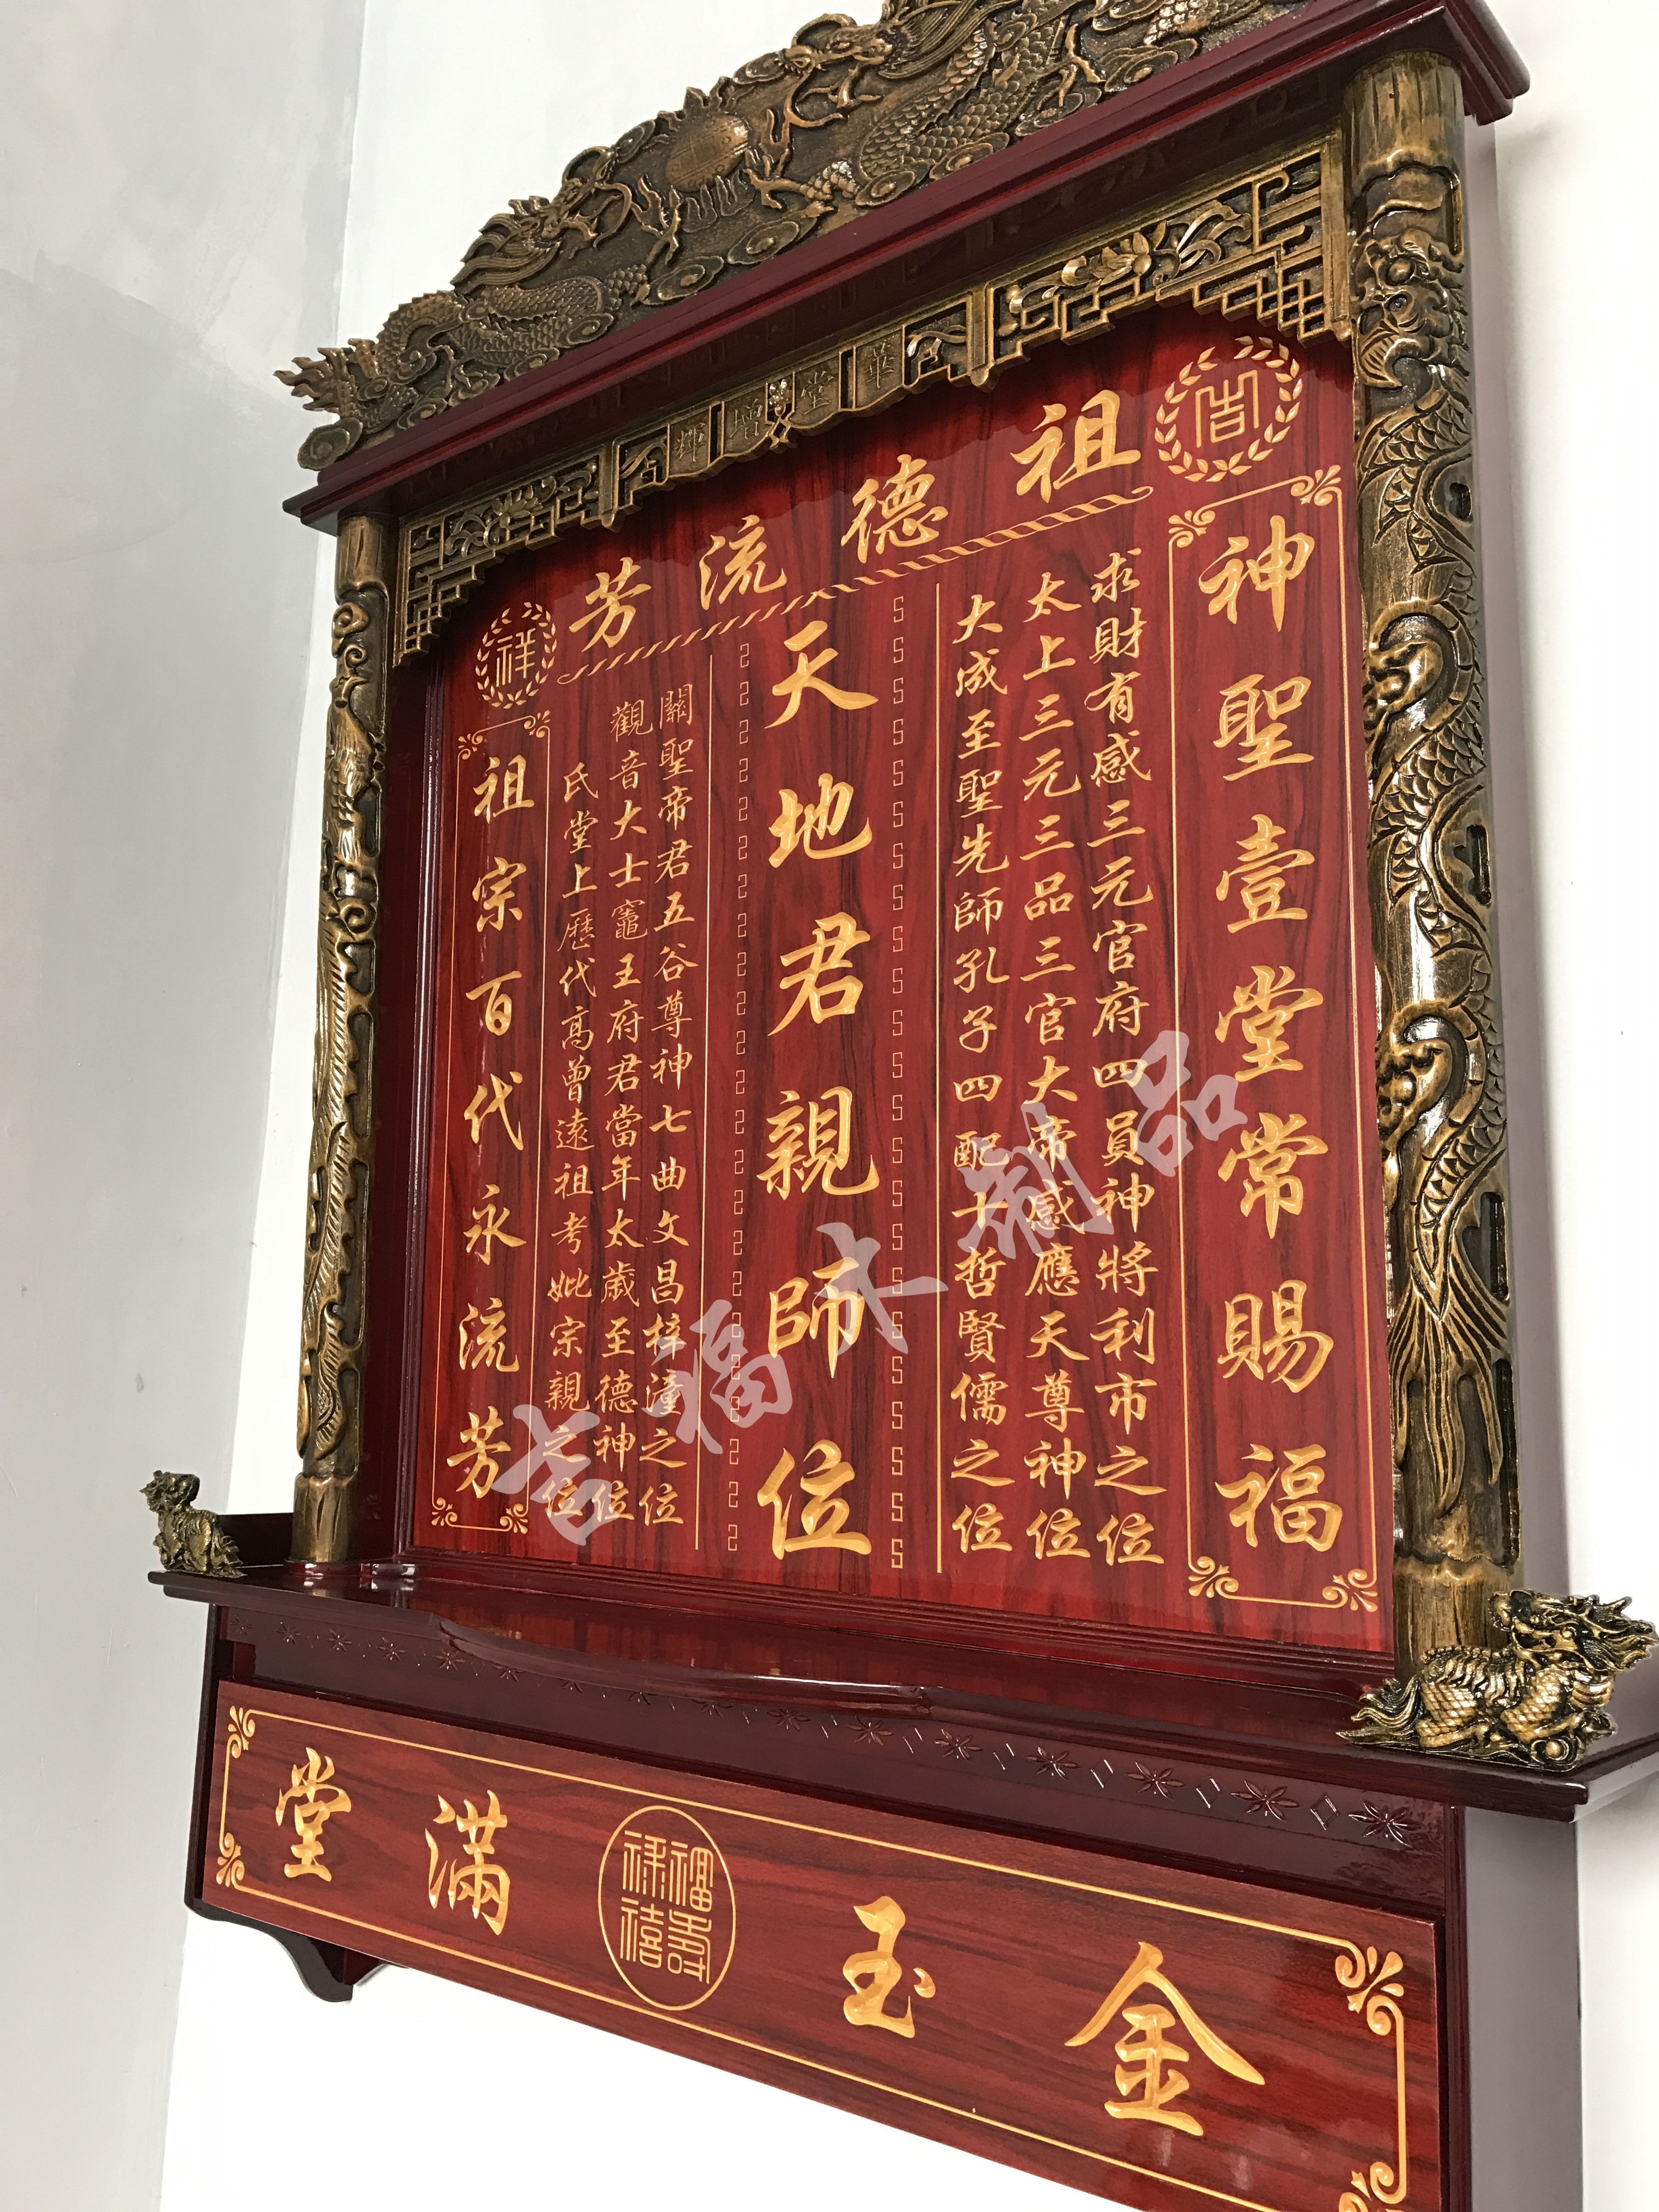 華堂增輝
祖德流芳
吉
祥
神聖壹堂常賜福
求財有感三元官府四員神將利市之位
太上三元三品三官大帝感應天尊神位
大成至聖先師孔子四配十哲賢儒之位
天地君親師位
關聖帝君五谷尊神七曲文昌梓潼之位
觀音大士竈王府君當年太歲至德神位
氏堂上歷代高曾遠祖考妣宗親之位
祖宗百代永流芳
金玉滿堂
福壽祿禧
吉福木制品